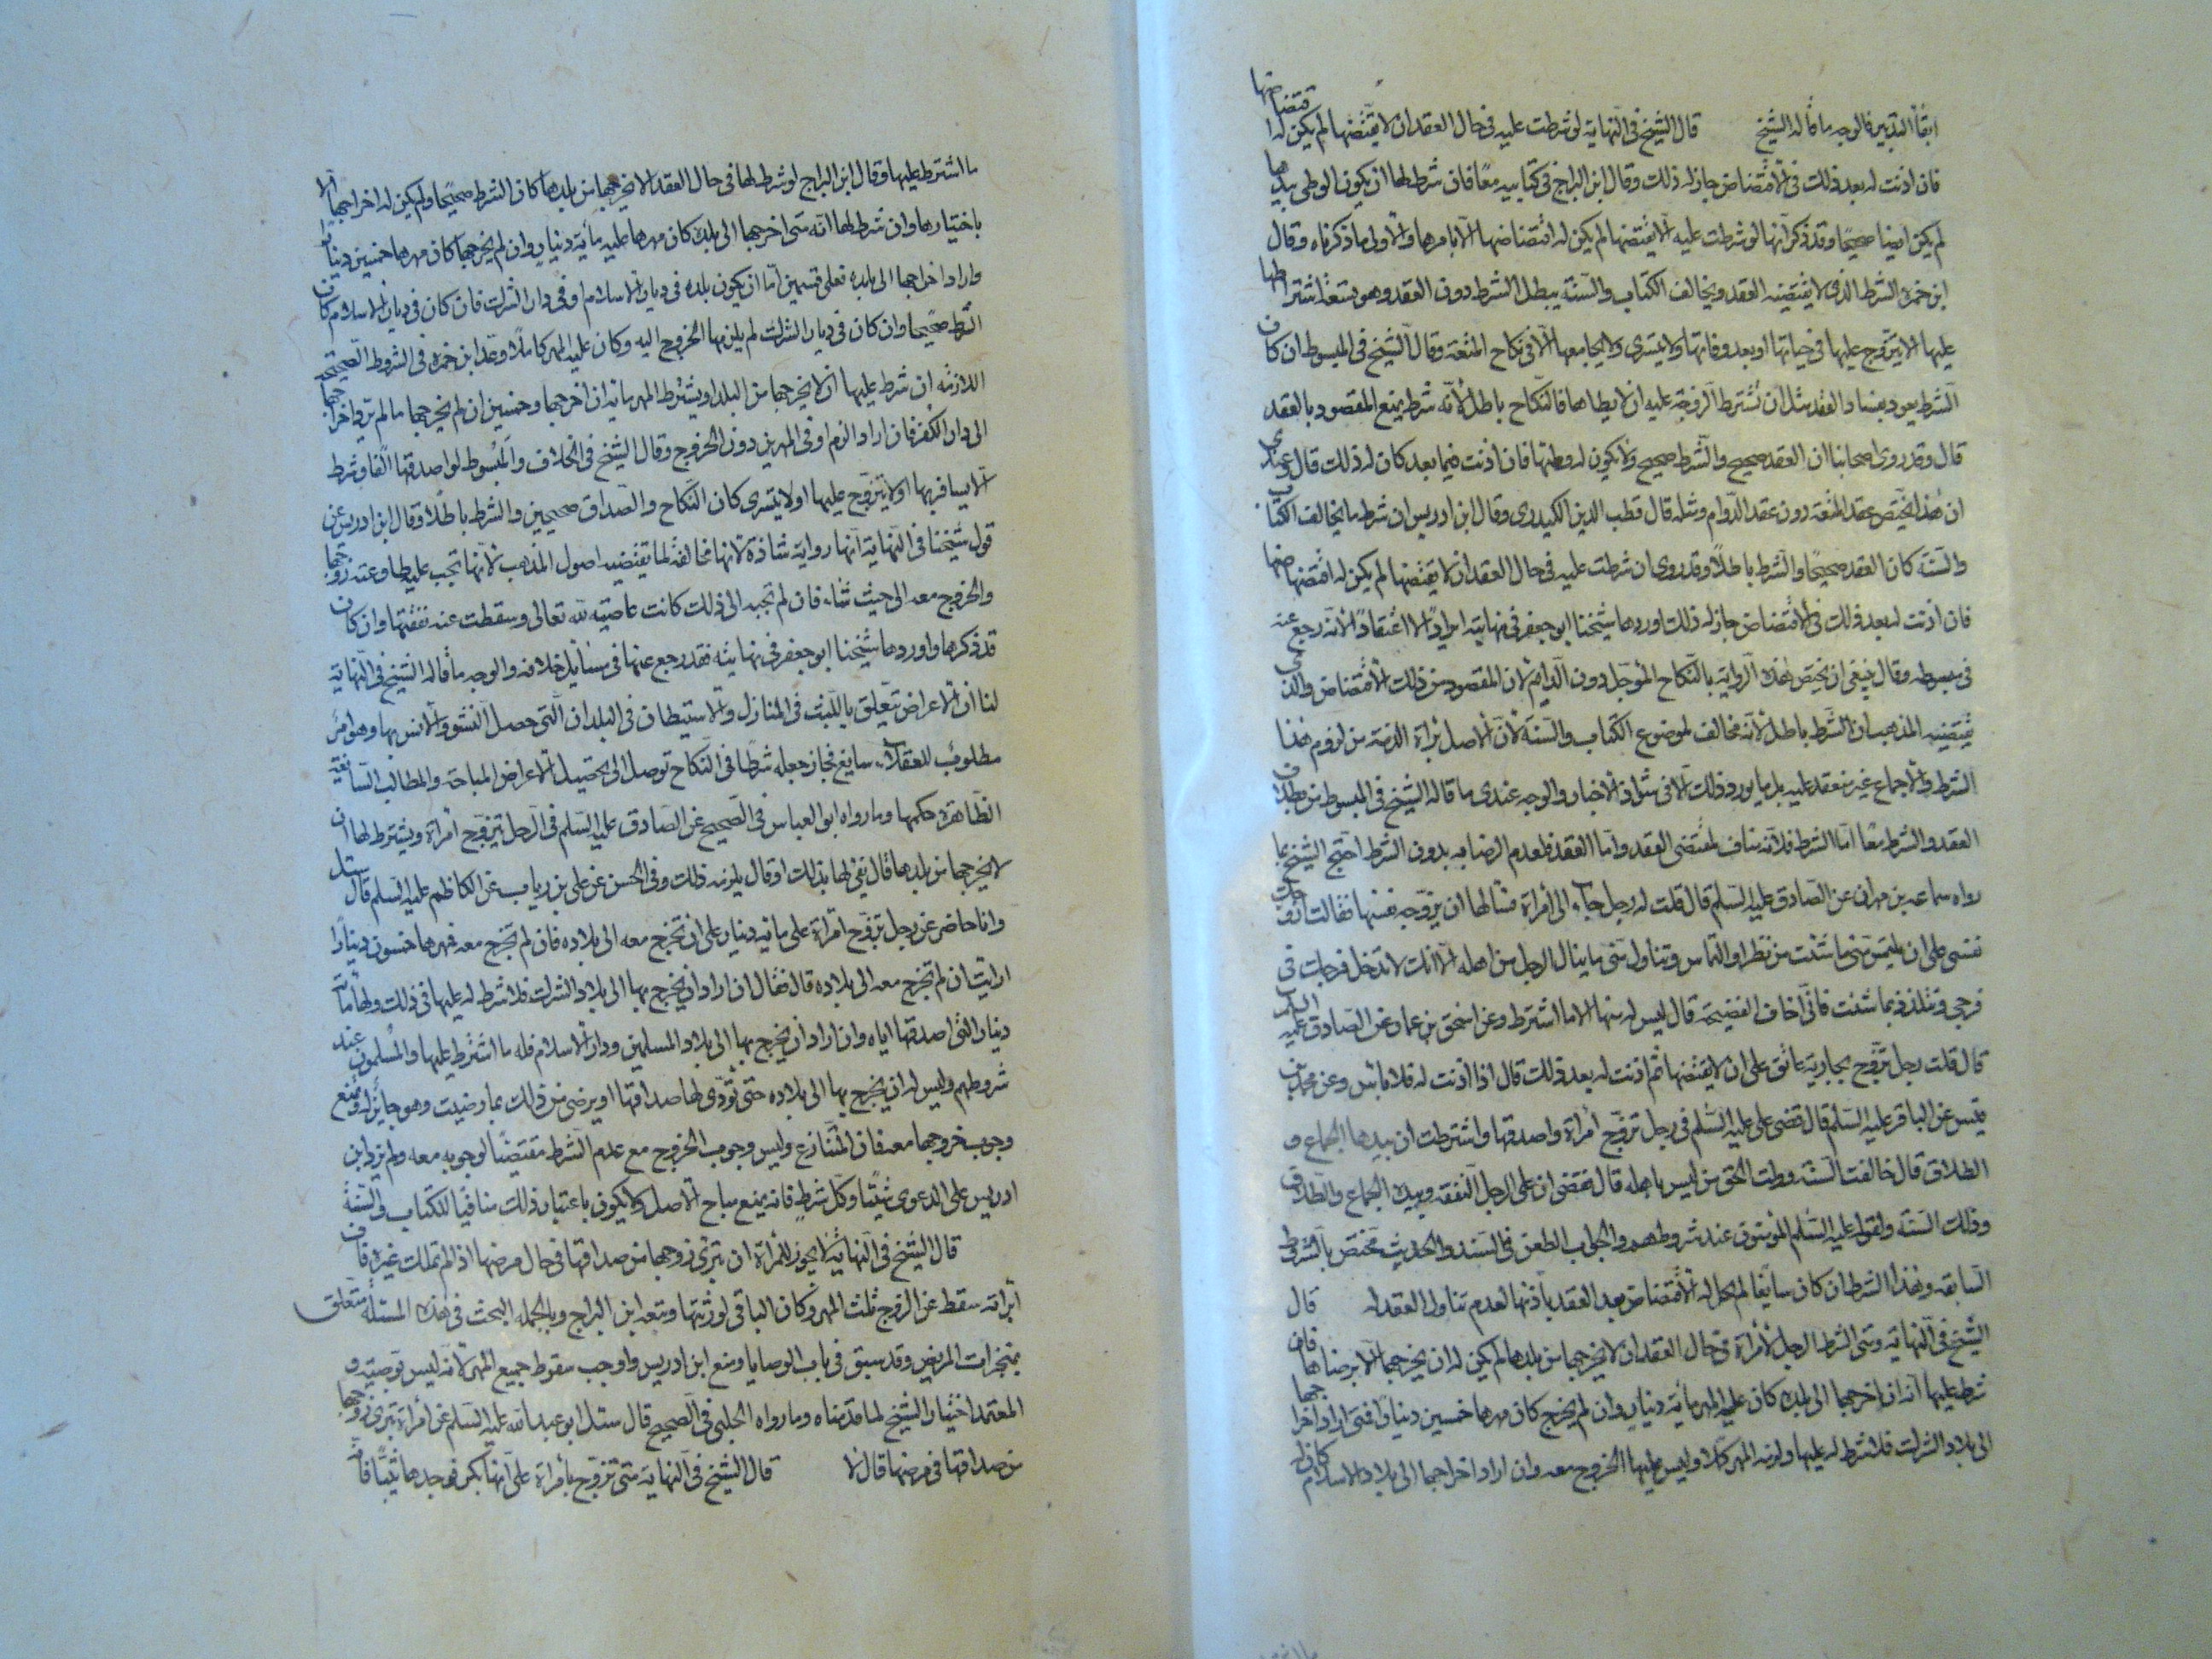 ابقاء التدبير فالوجه ما قاله الشيخ قال الشيخ في النهاية لو شرطت عليه في حال العقد ان لا يقتضها لم يكن له اقتضاضها
فان اذنت له بعد ذلك في الاقتضاض جاز له ذلك وقال ابن البراج في كتابيه معا فان شرط لها ان يكون الوطي بيدها
لم يكن ايضا صحيحا وقد ذكر انها لو شرطت عليه الا يقتضها لم يكن له اقتضاضها الا بامرها والاولى ما ذكرناه وقال
ابن حمزة الشرط الذي لا يقتضيه العقد ويخالف الكتاب والسنة يبطل الشرط دون العقد وهو تسعة اشتراطها
عليها الا يتزوج عليها في حياتها او بعد وفاتها ولا يتسرى ولا يجامعها الا في نكاح المتعة وقال الشيخ في المبسوط ان كان
الشرط يعود بفساد العقد مثل ان تشترط الزوجة عليه ان لا يطاها فالنكاح باطل لانه شرط يمنع المقصود بالعقد
قال وقد روى اصحابنا ان العقد صحيح والشرط صحيح ولا يكون له وطئها فان اذنت فيما بعد كان له ذلك قال وعندي
ان هذا يختص عقد المتعة دون عقد الدوام ومثله قال قطب الدين الكيدري وقال ابن ادريس ان شرط ما يخالف الكتاب
والسنة كان العقد صحيحا والشرط باطلا وقد روي ان شرطت عليه في حال العقد ان لا يقتضها لم يكن له اقتضاضها
فان اذنت له بعد ذلك في الاقتضاض جاز له ذلك اوردها شيخنا ابو جعفر في نهايته ايرادا لا اعتقادا لانه رجع عنه
في مبسوطه وقال ينبغي ان يختص هذه الرواية بالنكاح المؤجل دون الدايم لان المقصود من ذلك الاقتضاض والذي
يقتضيه المذهب ان الشرط باطل لانه مخالف لموضوع الكتاب والسنة لان الاصل براة الذمة من لزوم هذا
الشرط والاجماع غير منعقد عليه بل ما يورد ذلك الا في شواذ الاخبار والوجه عندي ما قاله الشيخ في المبسوط من بطلان
العقد والشرط معا اما الشرط فلانه مناف لمقتضى العقد واما العقد فلعدم الرضا به بدون الشرط احتج الشيخ بما
رواه سماعه بن مهران عن الصادق عليه السلم قال قلت له رجل جاء الى امراة فسالها ان يزوجه نفسها فقالت ازوجك
نفسي على ان تلتمس مني ما شئت من نظر او التماس وتناول مني ما ينال الرجل من اهله الا انك لا تدخل فرجك في
فرجي وتتلذذ بما شئت فاني اخاف الفضيحة قال ليس له منها الا ما اشترط وعن اسحق بن عمار عن الصادق عليه السلم
قال قلت رجل تزوج بجارية عاتق على ان لا يقتضها ثم اذنت له بعد ذلك قال اذا اذنت له فلا باس وعن محمد بن
قيس عن الباقر عليه السلم قال قضى علي عليه السلم في رجل تزوج امراة واصدقها واشترطت ان بيدها الجماع و
الطلاق قال خالفت السنة وولت الحق من ليس باهله قال فقضى ان على الرجل النفقه وبيده الجماع والطلاق
وذلك السنة ولقوله عليه السلم المؤمنون عند شروطهم والجواب الطعن في السند والحديث مختص بالشروط
السابقه وهذا الشرط ان كان سايغا لم يحل له الاقتضاض بعد العقد باذنها لعدم تناول العقد له قال
الشيخ في النهاية ومتى الشرط الرجل لامراة في حال العقد ان لا يخرجها من بلدها لم يكن له ان يخرجها الا برضاها فان
شرط عليها انه ان اخرجها الى بلده كان عليه المهر مائة دينار وان لم يخرج كان مهرها خمسين دينارا فمتى اراد اخراجها
الى بلاد الشرك فلا شرط له عليها ولزمه المهر كملا وليس عليها الخروج معه وان اراد اخراجها الى بلاد الاسلام كان له
ما اشترط عليها وقال ابن البراج لو شرط لها في حال العقد الا يخرجها من بلدها كان الشرط صحيحا ولم يكن له اخراجها الا
باختيارها وان شرط لها انه متى اخرجها الى بلده كان مهرها عليه مائة دينار وان لم يخرجها كان مهرها خمسين دينارا
واراد اخراجها الى بلده فعلى قسمين اما ان يكون بلده في ديار الاسلام او في دار الشرك فان كان في ديار الاسلام كان
الشرط صحيحا وان كان في ديار الشرك لم يلزمها الخروج اليه وكان عليه المهر كاملا وعد ابن حمزه في الشروط الصحيحة
اللازمة ان شرط عليها ان لا يخرجها من البلد او يشترط المهر مائة ان اخرجها وخمسين ان لم يخرجها ما لم يرد اخراجها
الى دار الكفر فان اراد الزم اوفى المهرين دون الخروج وقال الشيخ في الخلاف والمبسوط لو اصدقها الفا وشرط
الا يسافر بها او لا يتزوج عليها او لا يتسرى كان النكاح والصداق صحيحين والشرط باطلا وقال ابن ادريس عن
قول شيخنا في النهاية انها رواية شاذة لانها مخالفة لما يقتضيه اصول المذهب لانها تجب عليها مطاوعته زوجها
والخروج معه الى حيث شاء فان لم تجبه الى ذلك كانت عاصية لله تعالى وسقطت عنه نفقتها وان كان
قد ذكرها واوردها شيخنا ابو جعفر في نهايته فقد رجع عنها في مسايل خلافه والوجه ما قاله الشيخ في النهاية
لنا ان الاعراض تتعلق باللبث في المنازل والاستيطان في البلدان التي حصل النشو والانس بها وهو امر
مطلوب للعقلاء سايغ فجاز جعله شرطا في النكاح توصل الى تحصيل الاعراض المباحة والمطالب السايغة
الظاهرة حكمها وما رواه ابو العباس في الصحيح عن الصادق عليه السلم في الرجل تزوج امراة ويشترط لها ان
لا يخرجها من بلدها قال يفي لها بذلك او قال يلزمه ذلك وفي الحسن عن علي بن رياب عن الكاظم عليه السلم قال سئل
وانا حاضر عن رجل تزوج امراة على مائة دينار على ان تخرج معه الى بلاده فان لم تخرج معه فمهرها خمسون دينارا
ارايت ان لم تخرج معه الى بلاده قال فقال ان اراد ان يخرج بها الى بلاد الشرك فلا شرط له عليها في ذلك ولها مائة
دينار التي اصدقها اياه وان اراد ان يخرج بها الى بلاد المسلمين ودار الاسلام فله ما اشترط عليها والمسلمون عند
شروطهم وليس له ان يخرج بها الى بلاده حتى تؤدى لها صداقها او يرضى من ذلك بما رضيت وهو جايز له ويمنع
وجوب خروجها معه فان المتنازع وليس وجوب الخروج مع عدم الشرط مقتضيا لوجوبه معه ولم يزد ابن
ادريس على الدعوى شيئا وكل شرط فانه يمنع مباح الاصل ولا يكون باعتبار ذلك منافيا للكتاب والسنة
قال الشيخ في النهاية لا يجوز للمراة ان تبرئ زوجها من صداقها في حال مرضها اذا لم تملك غيره فان
ابراته سقط عن الزوج ثلث المهر وكان الباقي لورثتها وتبعه ابن البراج وبالجمله البحث في هذه المسئله متعلق
بمنجزات المريض وقد سبق في باب الوصايا ومنع ابن ادريس واوجب سقوط جميع المهر لانه ليس بوصية و
المعتمد اختيار الشيخ لما قدمناه وما رواه الحلبي في الصحيح قال سئل ابو عبد الله عليه السلم عن امراة تبرئ زوجها
من صداقها في مرضها قال لا قال الشيخ في النهاية متى تزوج بامراة على انها بكر فوجدها ثيبا فانه